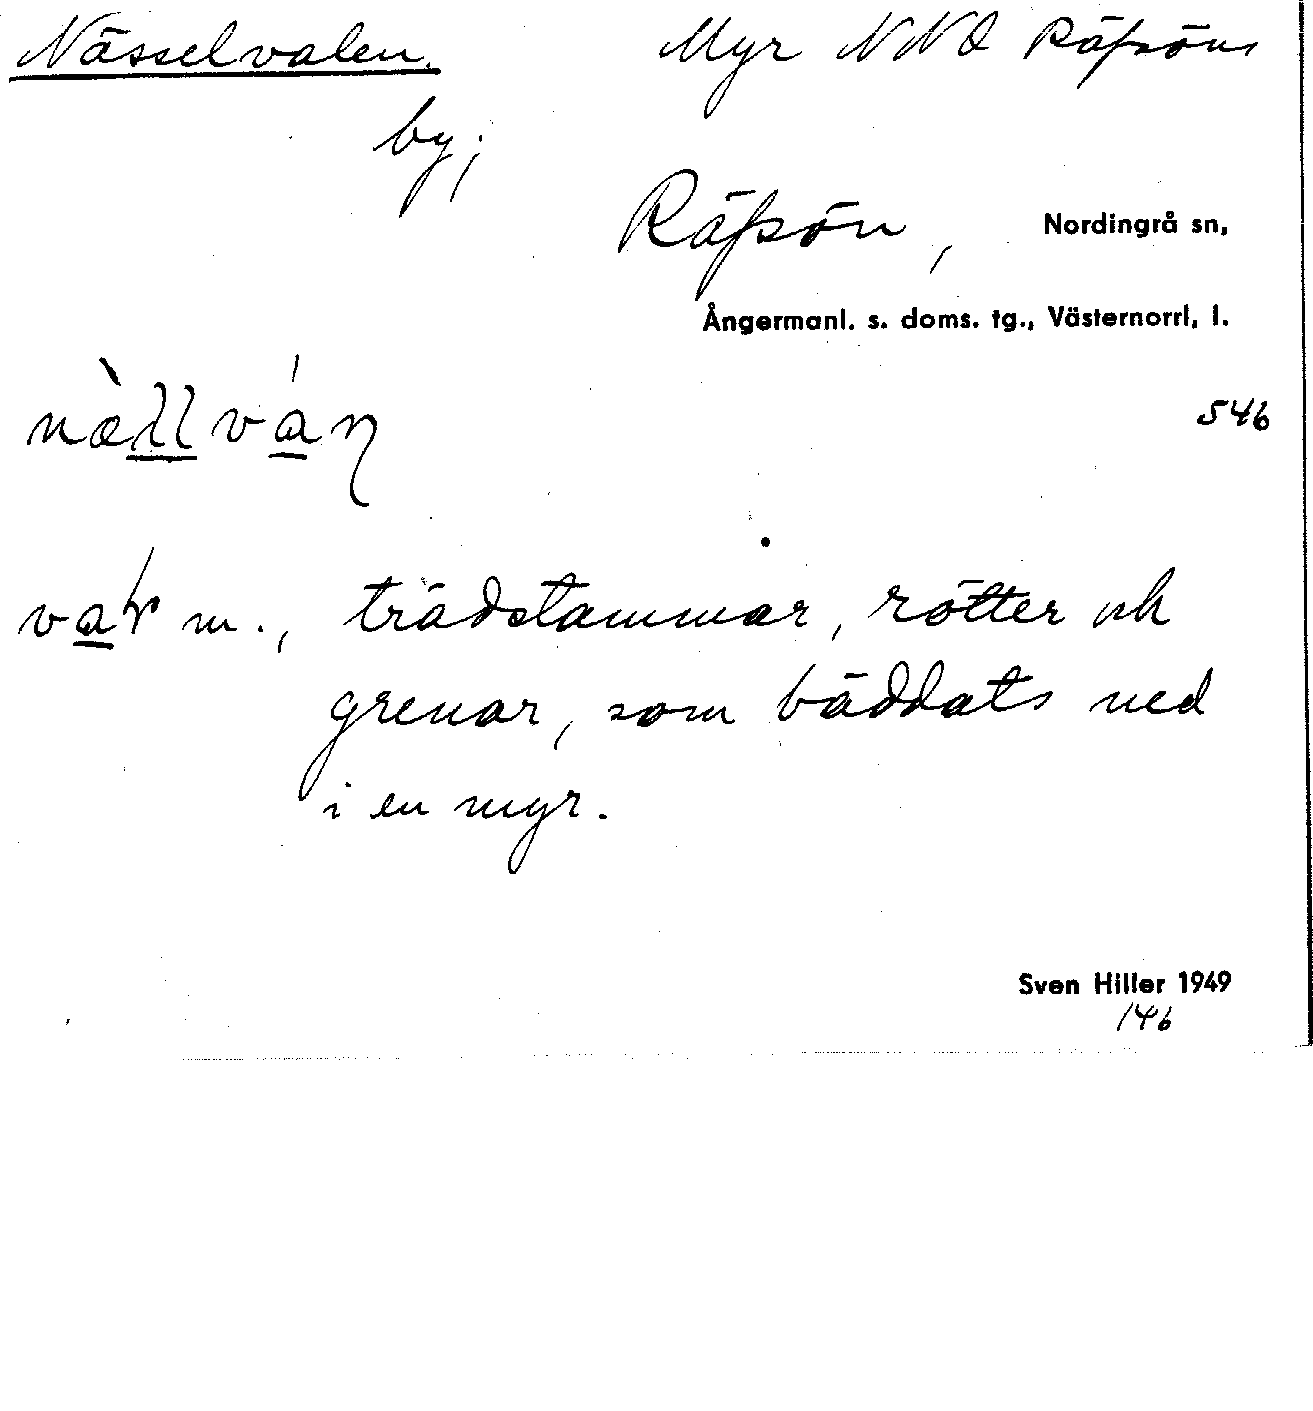 Nässelvalen.
Myr NNO Räfsöns
by;
Räfsön, Nordingrå sn,
Ångermanl. s. doms. tg., Västernorrl. l.
546
m., trädstammar, rötter och
grenar, som bäddats ned
i en myr.
Sven Hiller 1949
146